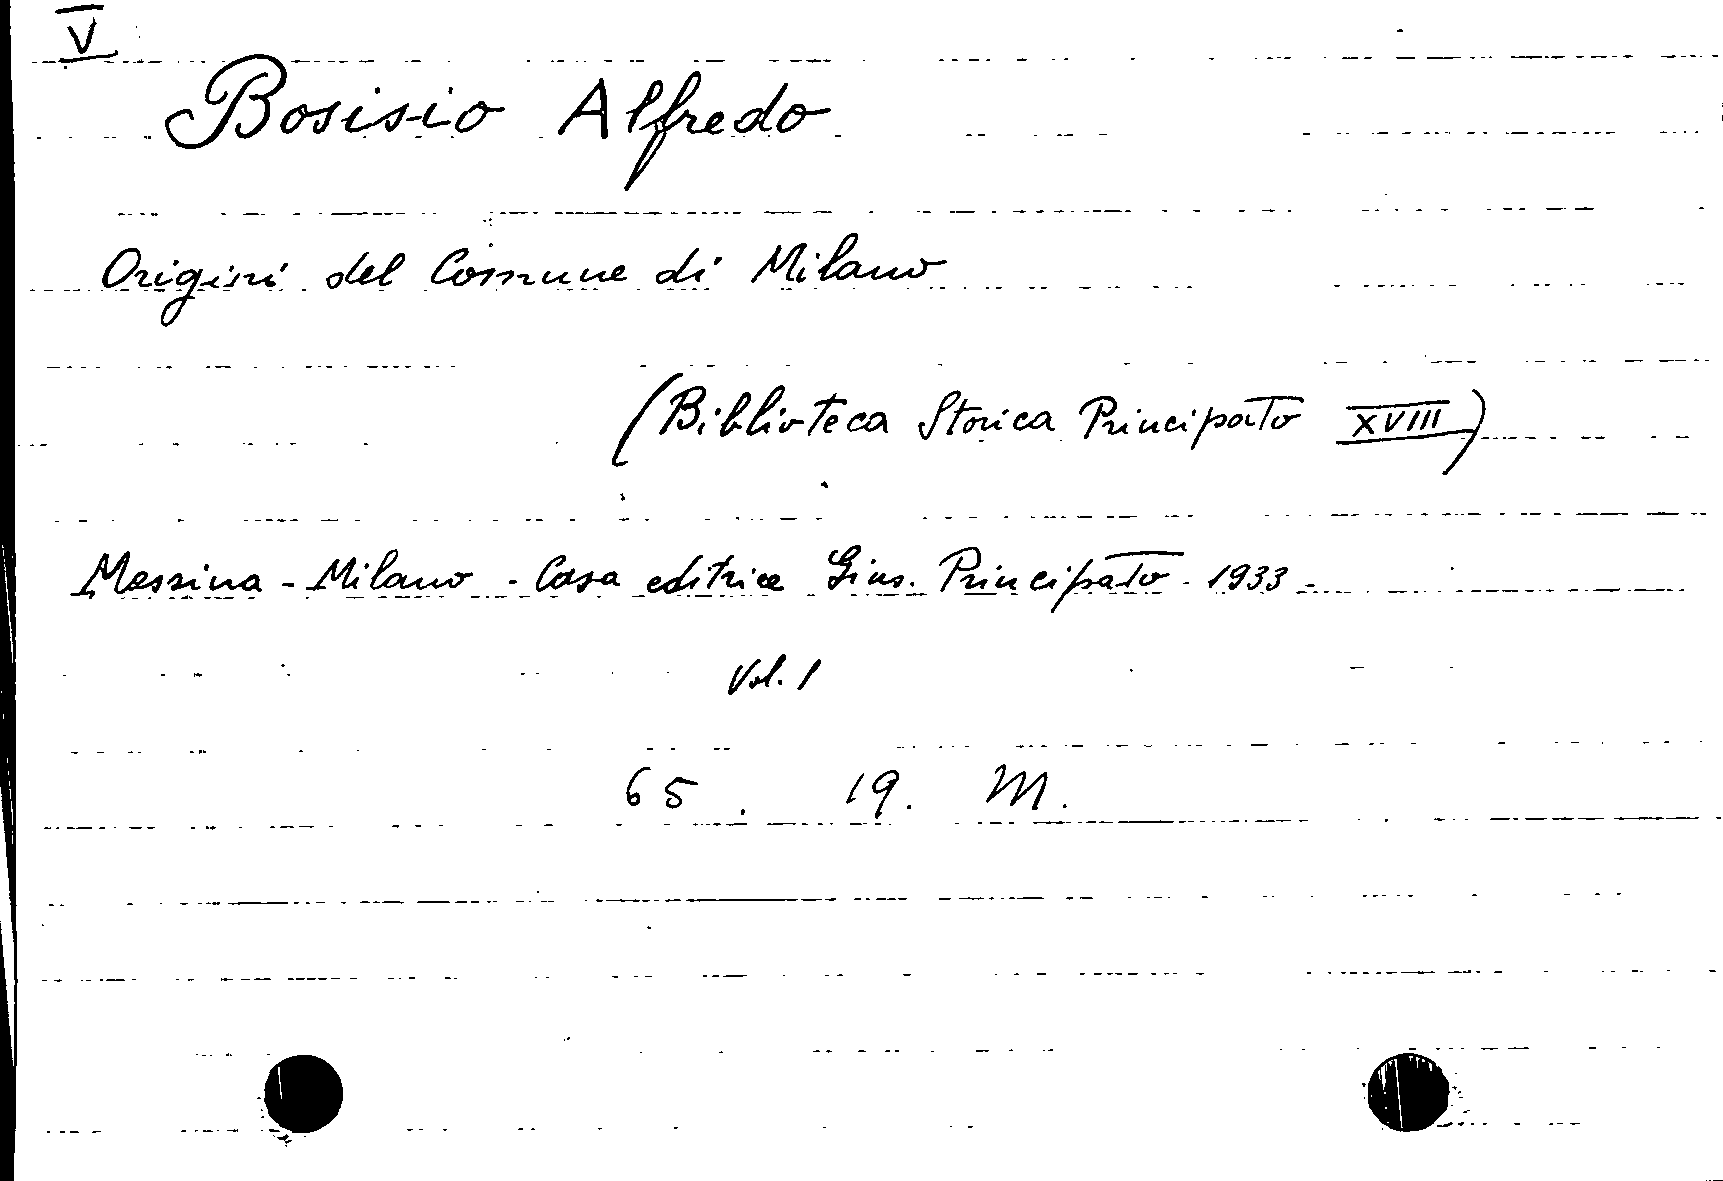 V
Bosisio Alfredo
Origini del Comune di Milano
(Biblioteca Storica Principato XVIII)
Messina - Milano - Casa editrice Gius. Principato - 1933 -
Vol. 1
65 . 19. M.